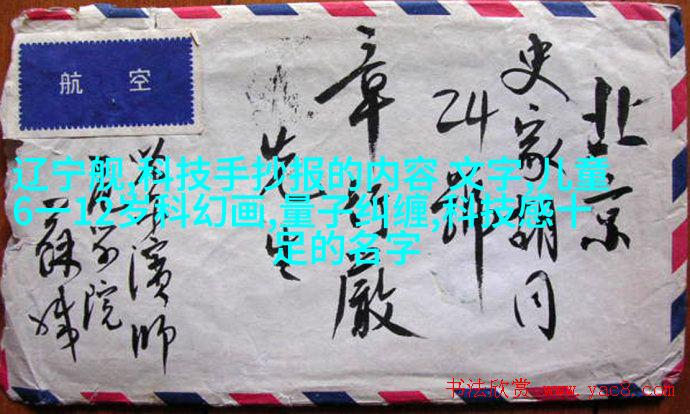 航空
北京
史家胡同
24號
章行嚴
先生
濱師
學院
辽宁舰,科技手抄报的内容 文字,儿童
6一12岁科幻画,量子纠缠,科技感十
足的名字
书法欣赏 www.yac8.com